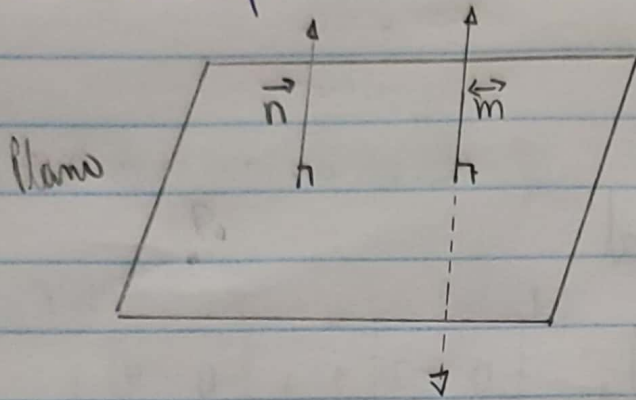 n⃗
m⃡
Plano